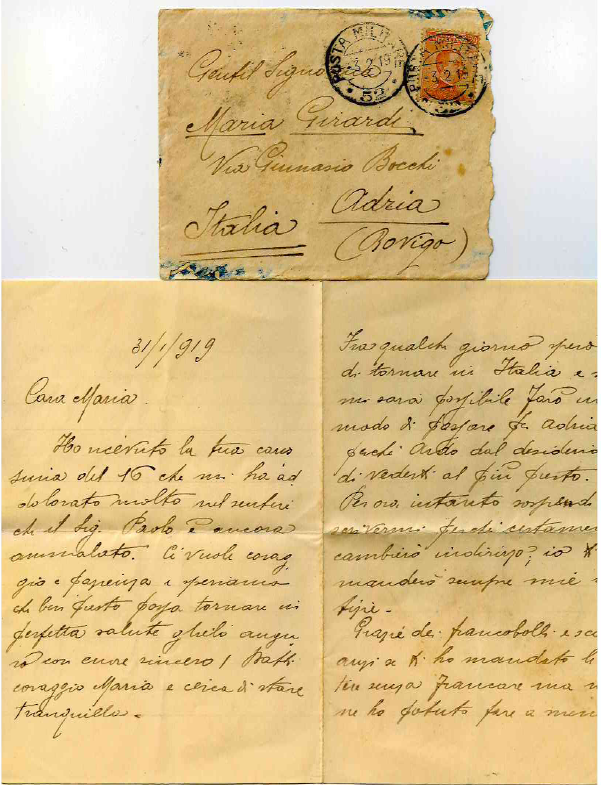 POSTA MILITARE
3.2.19
52
POSTA MILITARE
3.2.19
52
Gentil Signorina
Maria Girardi
Via Ginnasio Bocchi
Adria
Italia
(Rovigo)
31/1/919
Cara Maria.
Ho ricevuto la tua caris
sima del 16 che mi ha ad
dolorato molto nel sentire
che il Sig. Paolo è ancora
ammalato. Ci vuole corag
gio e pazienza e speriamo
che ben presto possa tornare in
perfetta salute glielo augu
ro con cuore sincero! Datti
coraggio Maria e cerca di stare
tranquilla.
Fra qualche giorno spero
di tornare in Italia e
mi sarà possibile farò in
modo di passare da Adria
perché ardo dal desiderio
di vederti al più presto.
Per ora intanto sospendi
scrivermi perché certamen
cambierò indirizzo, io ti
manderò sempre mie
tizie.
Grazie dei francobolli e
anzi se ti ho mandato le
tere senza francare ma
ne ho potuto fare a men